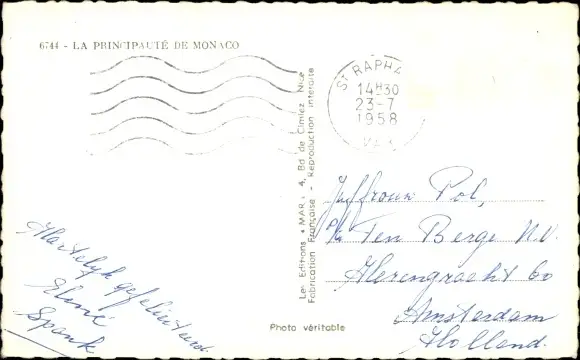 6744 - LA PRINCIPAUTÉ DE MONACO
ST RAPHA
14H30
23-7
1958
VAR
Les Editions « MAR » 4, Bd de Cimiez Nice
Fabrication Française - Reproduction interdite
Juffrouw Pol,
p/a Ten Berge N.V.
Herengracht 60
Amsterdam
Holland.
Hartelyk gefeliciteerd.
Spank
Photo véritable